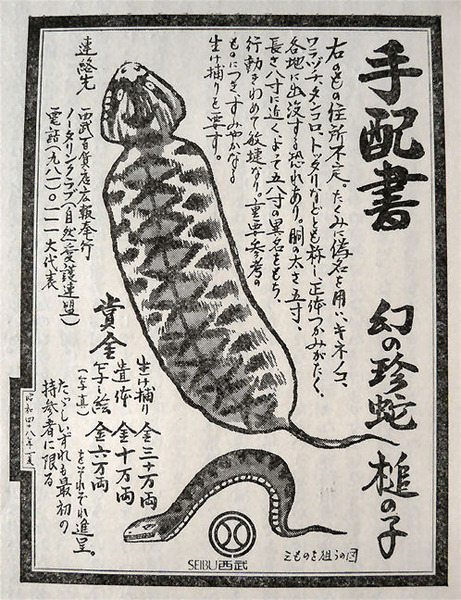 手配書
幻の珍蛇
槌の子
右のもの住所不定。たくみに偽名を用い、キネノコ、
ワラヅチ、タンコロ、トッタリなどとも称し、正体つかみがたく、
各地に出没する恐れあり。胴の太さ五寸、
長さ八寸に近く、よって五八寸の異名をもち、
行動きわめて敏捷なり。重要参考の
ものにつき、すみやかなる
生け捕りを要す。
連絡先
西武百貨店広報奉行
ノータリンクラブ(自然愛護連盟)
電話(九八一)〇一一一大代表
賞金
生け捕り 金三十万両
遺体 金十万両
写真と絵 金六万両
(写真)
をそれぞれ進呈。
ただしいずれも最初の
持参者に限る
昭和四八年夏
えものを狙うの図
SEIBU西武